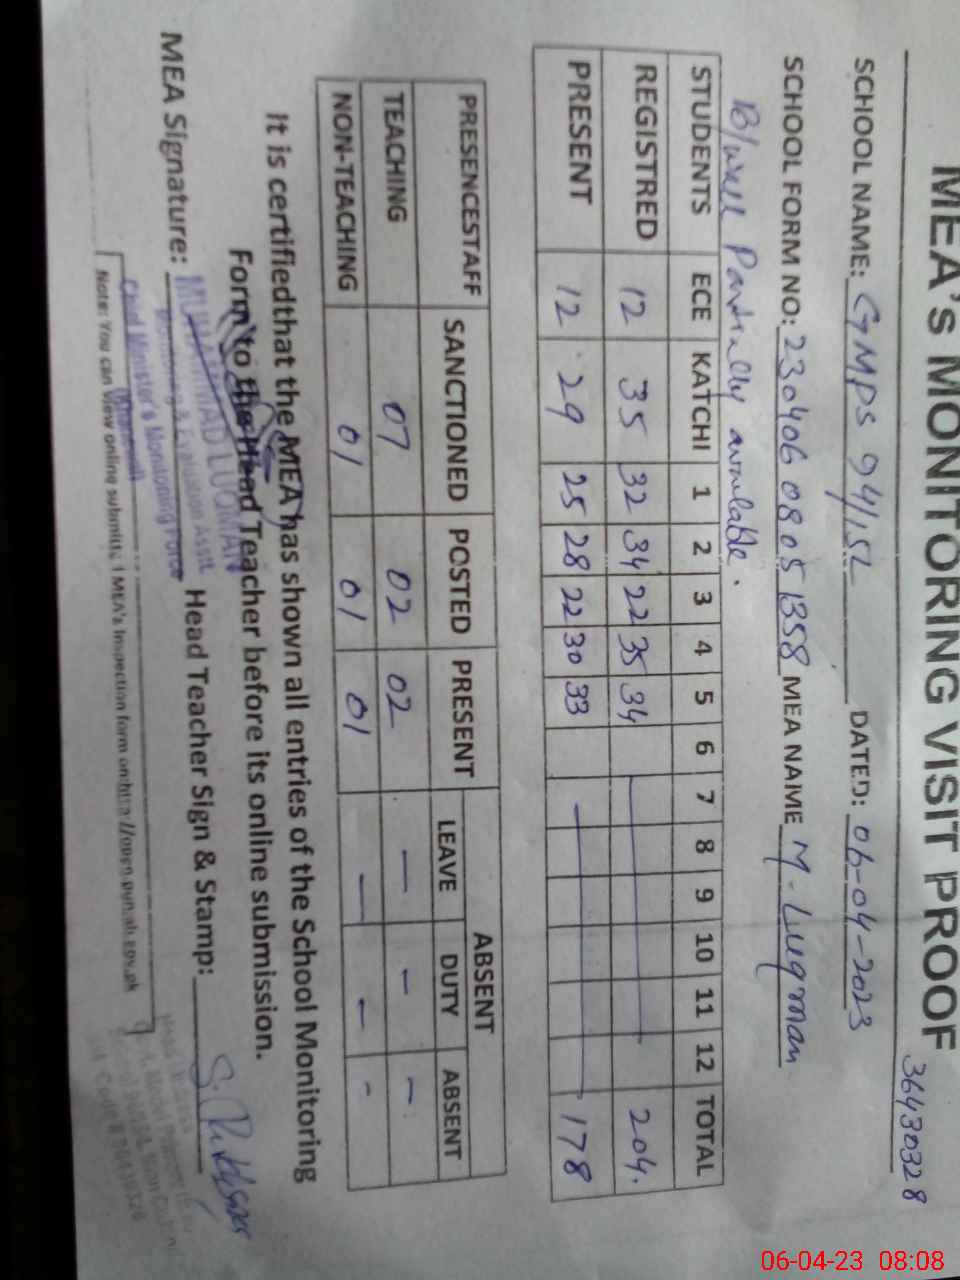 MEA's MONITORING VISIT PROOF
36430328
SCHOOL NAME: GMPS 94/15L DATED: 06-04-2023
SCHOOL FORM NO: 230406 0805 1358 MEA NAME M. Luqman
B/wall Partially available.
STUDENTS ECE KATCHI 1 2 3 4 5 6 7 8 9 10 11 12 TOTAL
REGISTRED 12 35 32 34 22 35 34 204.
PRESENT 12 29 25 28 22 30 33 178
PRESENCESTAFF SANCTIONED POSTED PRESENT ABSENT
LEAVE DUTY ABSENT
TEACHING 07 02 02 — – –
NON-TEACHING 01 01 01 — – -
It is certifiedthat the MEA has shown all entries of the School Monitoring
Form to the Head Teacher before its online submission.
MEA Signature: Head Teacher Sign & Stamp:
MUHAMMAD LUQMAN
Monitoring & Evaluation Asstt.
Chief Minister's Monitoring Force
Note: You can view online submitted MEA's Inspection form on:http://open.punjab.gov.pk
06-04-23 08:08